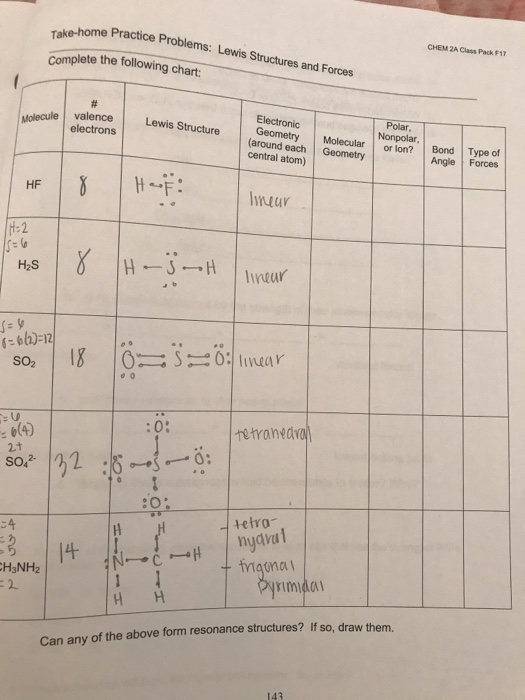 CHEM 2A Class Pack F17
Take-home Practice Problems: Lewis Structures and Forces
Complete the following chart:
Molecule
#
valence
electrons
Lewis Structure
Electronic
Geometry
(around each
central atom)
Molecular
Geometry
Polar,
Nonpolar,
or Ion?
Bond
Angle
Type of
Forces
HF
8
H F
linear
H=2
S=6
H₂S
8
H — S — H
linear
S=6
=6(2)=12
SO₂
18
O = S = O
linear
=6(4)
2+
SO₄²⁻
32
O
O — S — O
O
tetrahedral
=4
=5
CH₃NH₂
=2
14
H H
N — C — H
H H
- tetra-
hydral
- trigonal
pyrimidal
Can any of the above form resonance structures? If so, draw them.
143